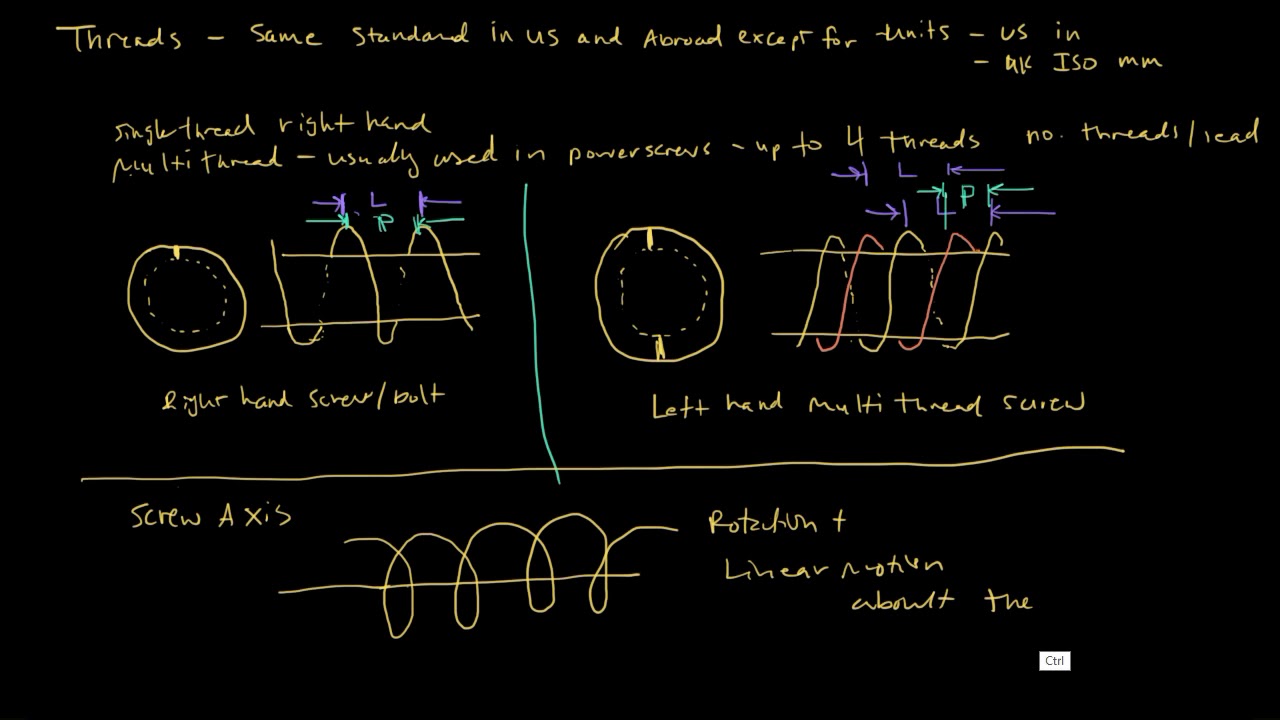 Threads - Same Standard in US and Abroad except for units - US in
- UK ISO mm
single thread right hand
multi thread - usually used in power screws - up to 4 threads no. threads/lead
L
P
L
P
L
Right hand screw/bolt
Left hand multi thread screw
Screw Axis
Rotation +
Linear motion
about the
Ctrl